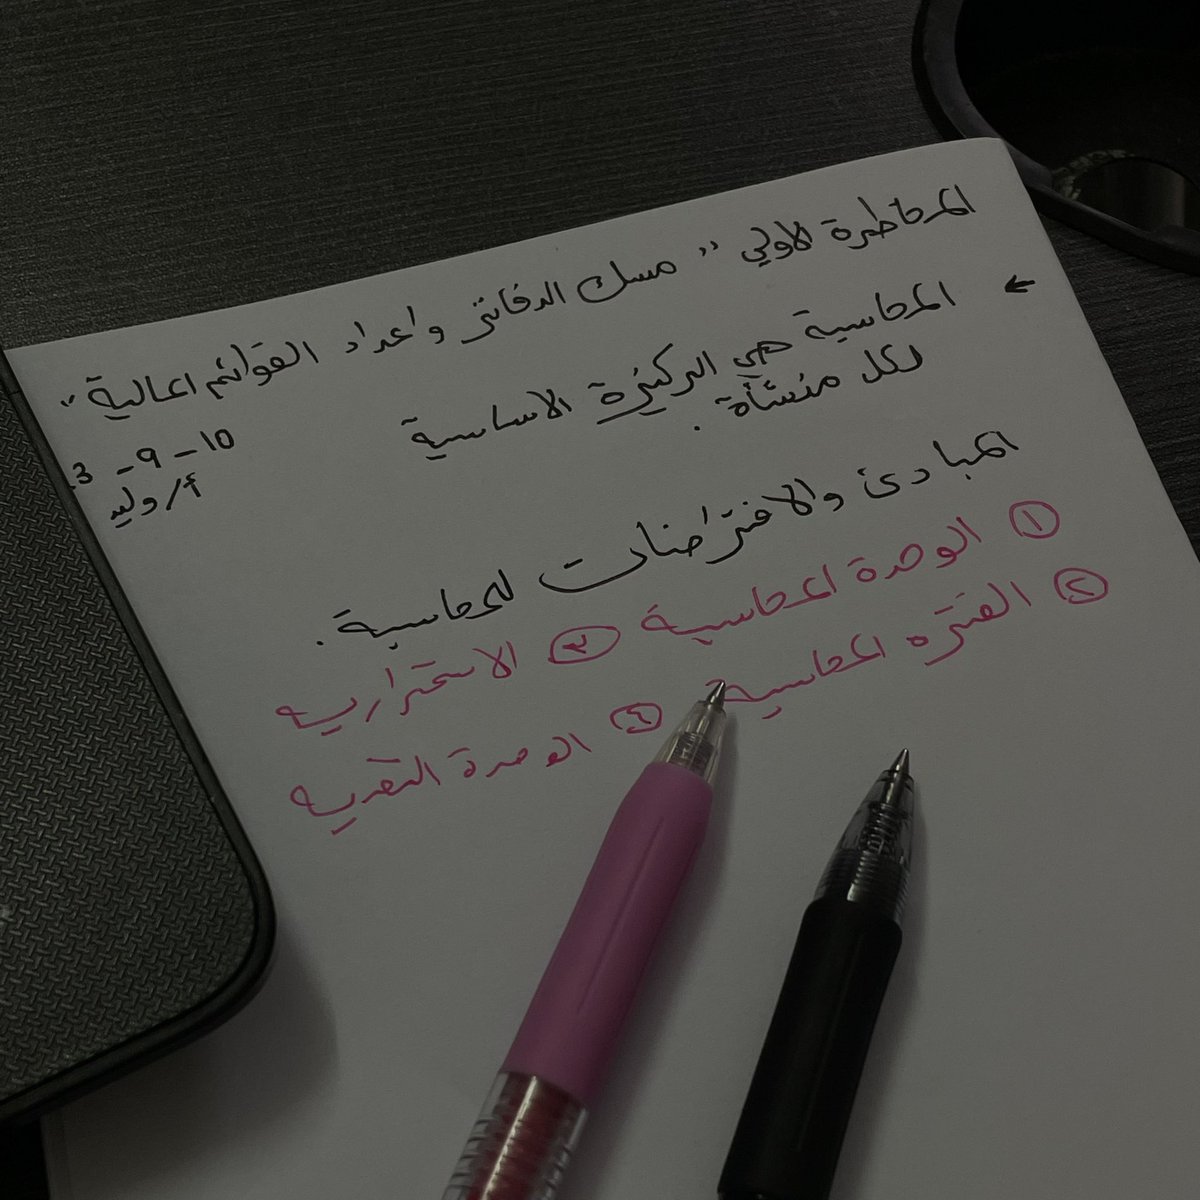 المحاضرة الأولى " مسك الدفاتر واعداد القوائم المالية "
← المحاسبة هي الركيزة الاساسية
لكل منشأة .
10 - 9 - 3
أ/وليد
المبادئ والافتراضات للمحاسبة .
① الوحدة المحاسبية ③ الاستمراريه
② الفتره المحاسبيه ④ الوحدة النقديه